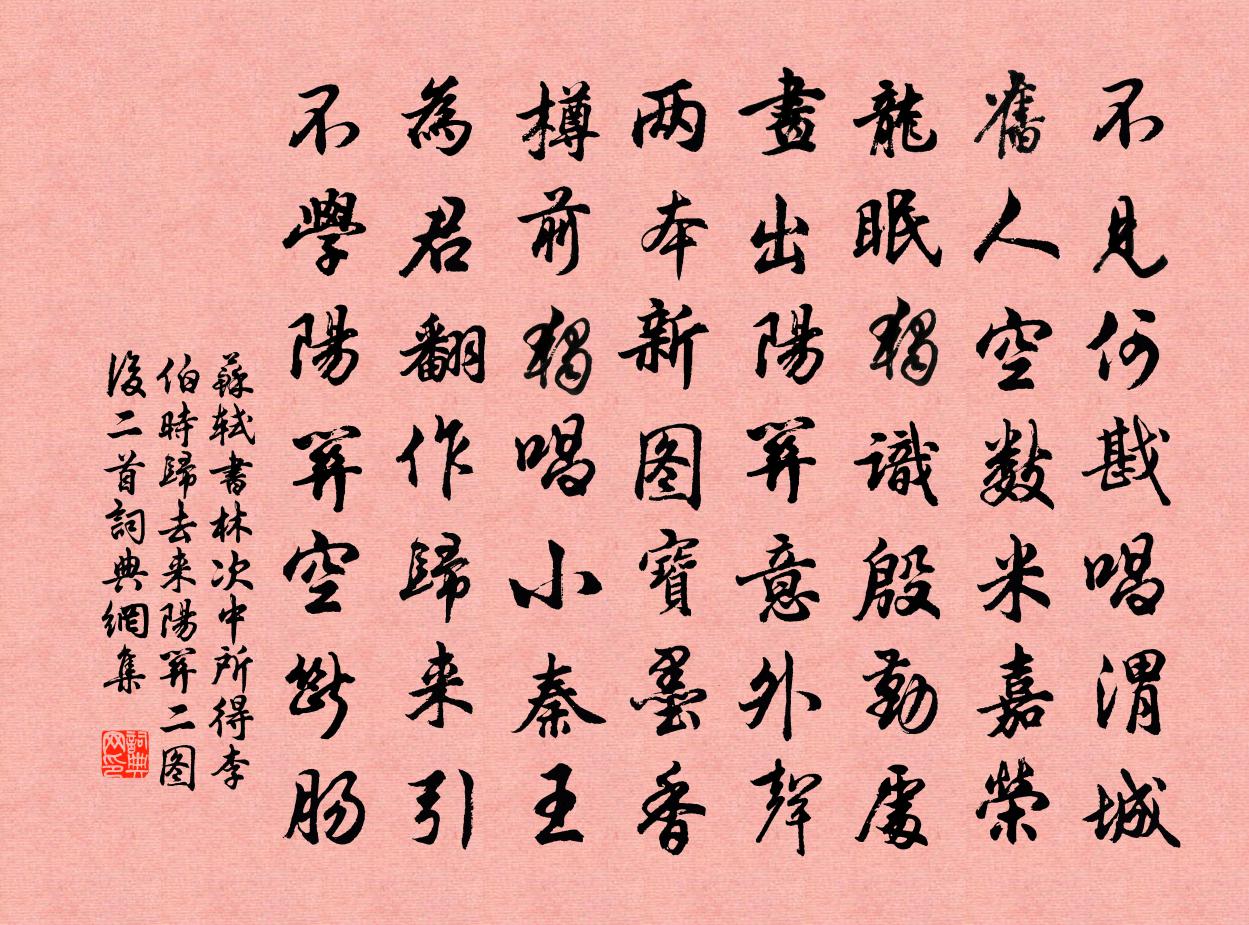 不見何戡唱渭城
舊人空數米嘉榮
龍眠獨識殷勤處
畫出陽關意外聲
两本新图寶墨香
樽前獨唱小秦王
為君翻作歸来引
不學陽關空斷腸
蘇軾書林次中所得李
伯時歸去来陽關二图
後二首詞典網集
詞典网印